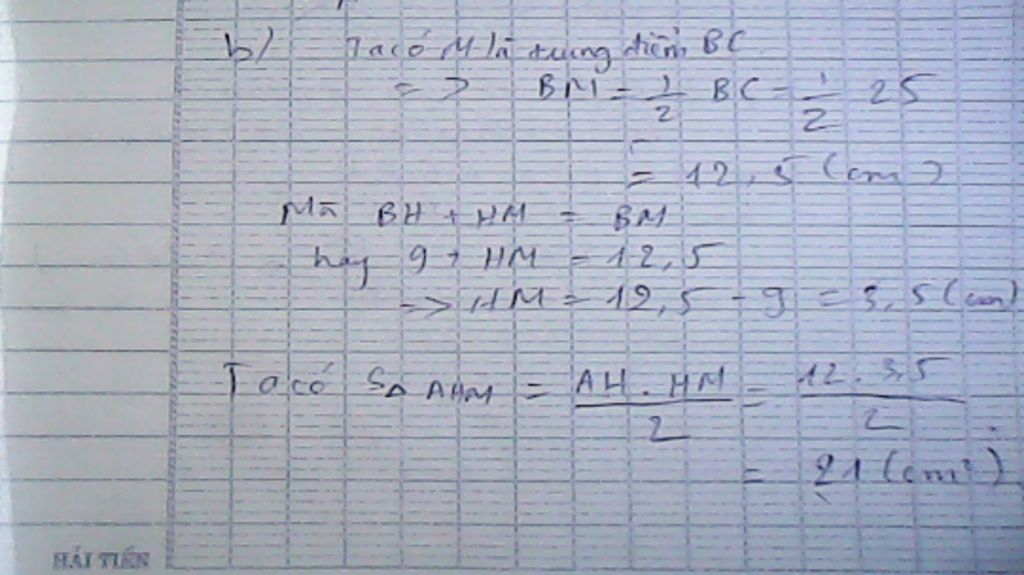 b/ Ta có M là trung điểm BC
=> BM = 1/2 BC = 1/2 25
= 12,5 (cm)
Mà BH + HM = BM
hay 9 + HM = 12,5
=> HM = 12,5 - 9 = 3,5 (cm)
Ta có SΔ AHM = AH . HM / 2 = 12 . 3,5 / 2
= 21 (cm²)
HẢI TIẾN